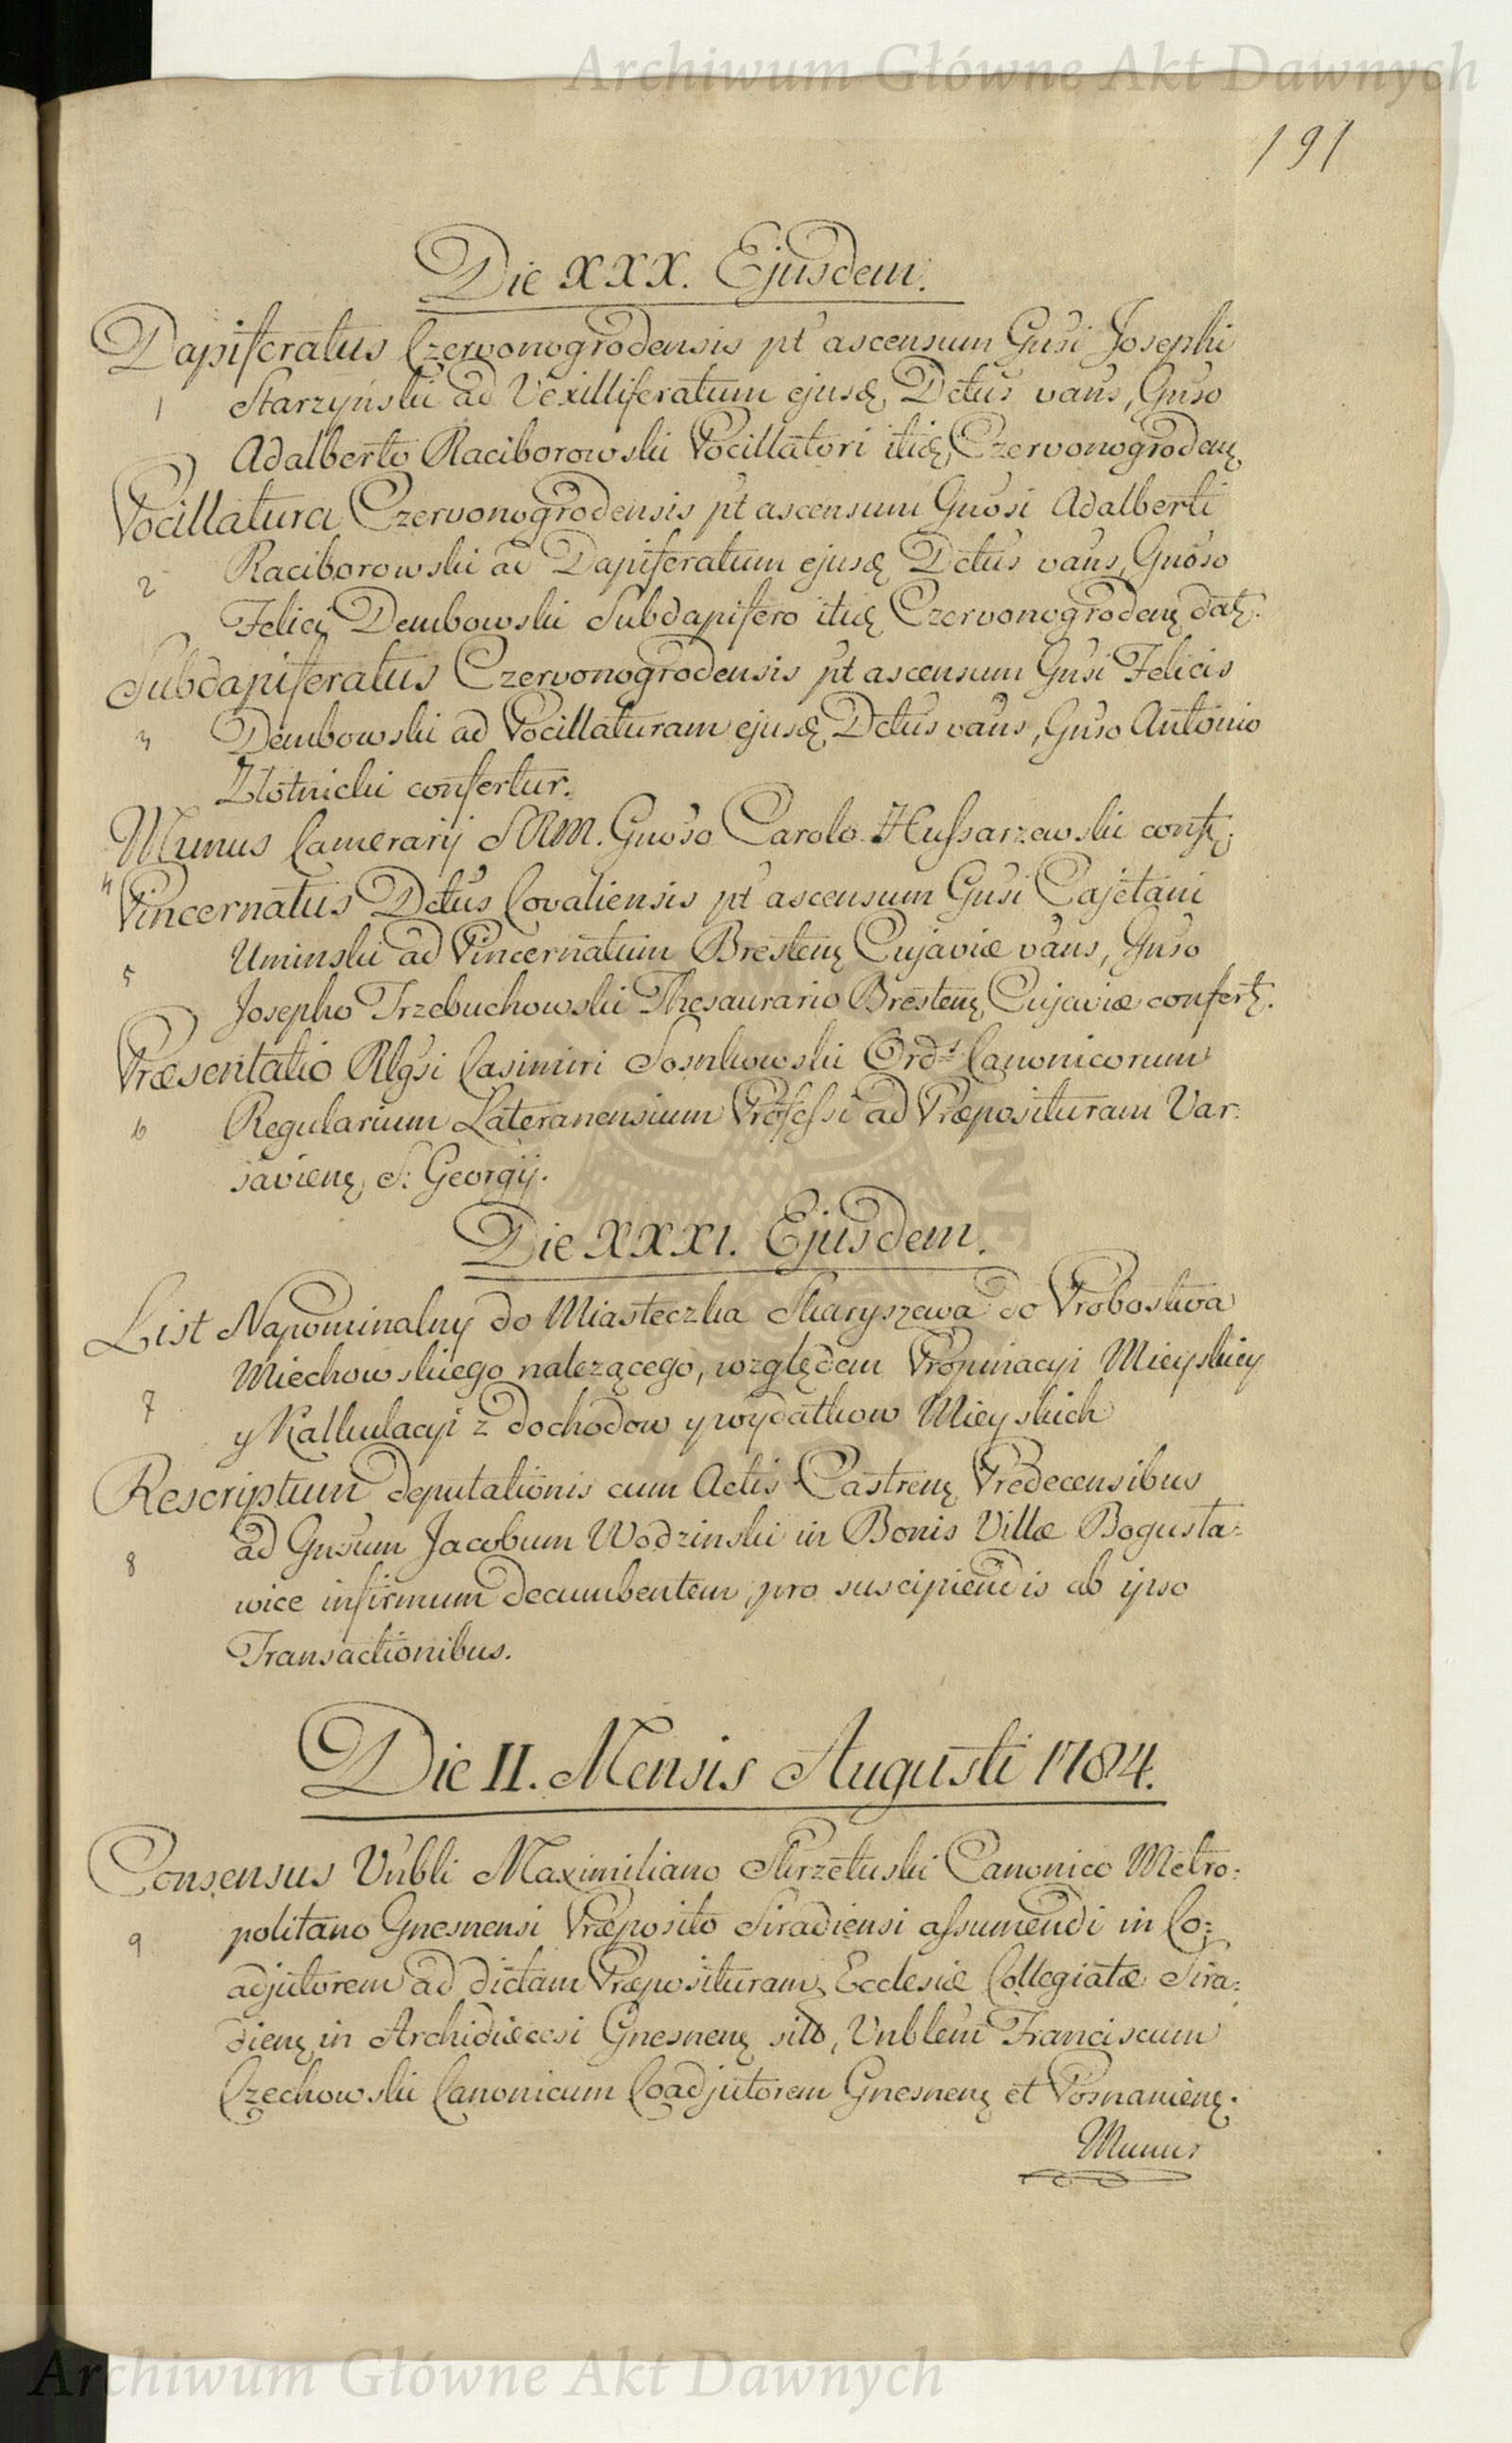 Archiwum Główne Akt Dawnych
191
Die XXX. Ejusdem.
Dapiferatus Czervonogrodensis pt ascensum Gnsi Josephi
1 Starzynski ad Vexilliferatum ejusȩ Dctus vans, Gnso
Adalberto Raciborowski Pocillatori itidȩ Czervonogrodenȩ
Pocillatura Czervonogrodensis pt ascensum Gnosi Adalberti
2 Raciborowski ad Dapiferatum ejusȩ Dctus vans, Gnoso
Felici Dembowski Subdapifero itidȩ Czervonogrodenȩ datȩ.
Subdapiferatus Czervonogrodensis pt ascensum Gnsi Felicis
3 Dembowski ad Pocillaturam ejusȩ Dctus vans, Gnso Antonio
Złotnicki confertur.
Munus Camerarij SRM. Gnoso Carolo Hussarzewski confȩ.
4 Pincernatus Dctus Covaliensis pt ascensum Gnsi Cajetani
5 Uminski ad Pincernatum Brestenȩ Cujaviæ vans, Gnso
Josepho Trzebuchowski Thesaurario Brestenȩ Cujaviæ confertȩ.
Præsentatio Rlgsi Casimiri Sosnkowski Ord:s Canonicorum
6 Regularium Lateranensium Professi ad Præposituram Var:
savienȩ S: Georgij.
Die XXXI. Ejusdem.
List Napominalny do Miasteczka Skaryszewa do Probostwa
Miechowskiego nalezącego, względem Propinacyi Mieyskiey
7 y Kalkulacyi z dochodow y wydatkow Mieyskich
Rescriptum deputationis cum Actis Castrenȩ Predecensibus
8 ad Gnsum Jacobum Wodzinski in Bonis Villæ Bogusła:
wice infirmum decumbentem pro suscipiendis ab ipso
Transactionibus.
Die II. Mensis Augusti 1784.
Consensus Vnbli Maximiliano Skrzetuski Canonico Metro:
9 politano Gnesnensi Præposito Siradiensi assumendi in Co:
adjutorem ad dictam Præposituram Ecclesiæ Collegiatæ Sira:
dienȩ in Archidiæcesi Gnesnenȩ sito, Vnblem Franciscum
Czechowski Canonicum Coadjutorem Gnesnenȩ et Posnanienȩ.
Munus
Archiwum Główne Akt Dawnych